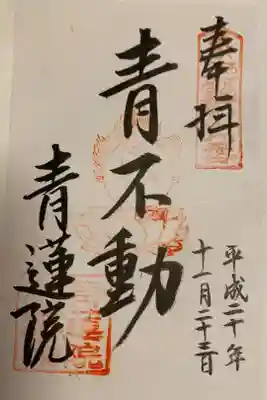 奉拝
平成二十年
十一月二十三日
青不動
青蓮院